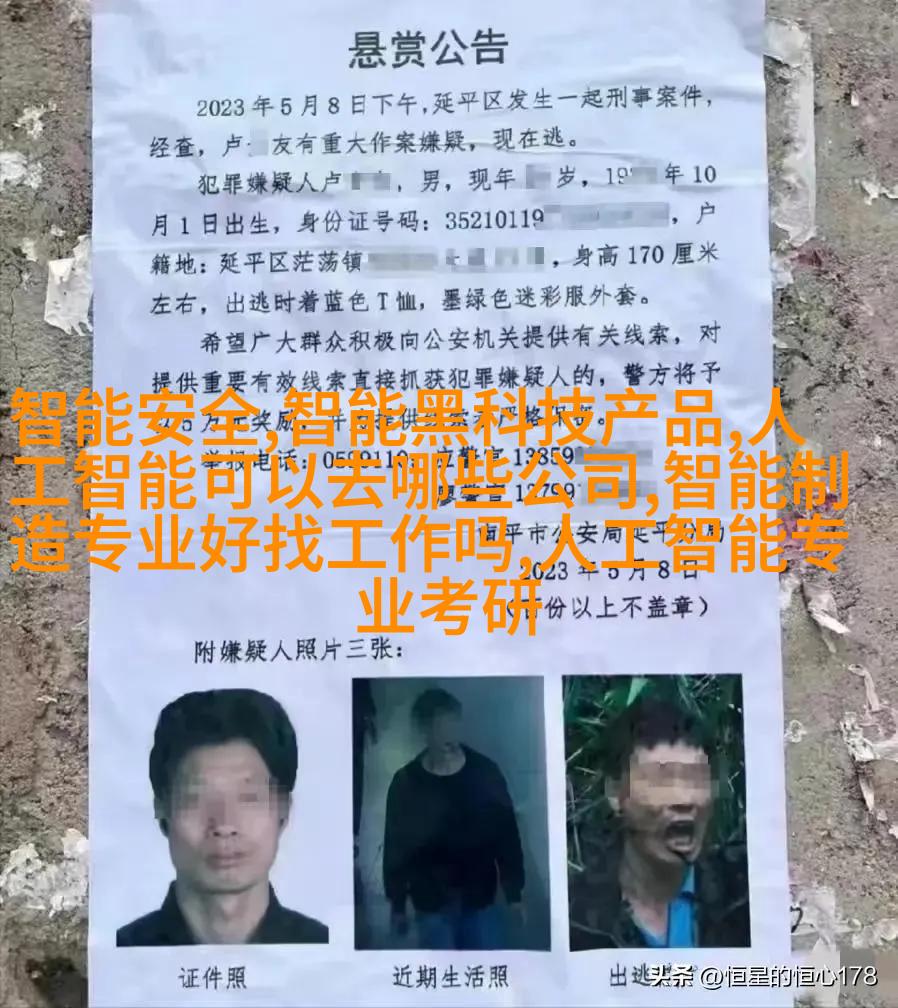 悬赏公告
2023年5月8日下午,延平区发生一起刑事案件,
经查,卢 友有重大作案嫌疑,现在逃。
犯罪嫌疑人卢 ,男,现年 岁,19 年10
月1日出生,身份证号码:35210119 ,户
籍地:延平区茫荡镇 ,身高170厘米
左右,出逃时着蓝色T恤,墨绿色迷彩服外套。
希望广大群众积极向公安机关提供有关线索,对
提供重要有效线索直接抓获犯罪嫌疑人的,警方将予
智能安全,智能黑科技产品,人
举报电话: 13859
工智能可以去哪些公司,智能制
警官 13799
南平市公安局延平分局
造专业好找工作吗,人工智能专
2023年5月8日
业考研
份以上不盖章)
附嫌疑人照片三张:
证件照 近期生活照 出逃
头条 @恒星的恒心178